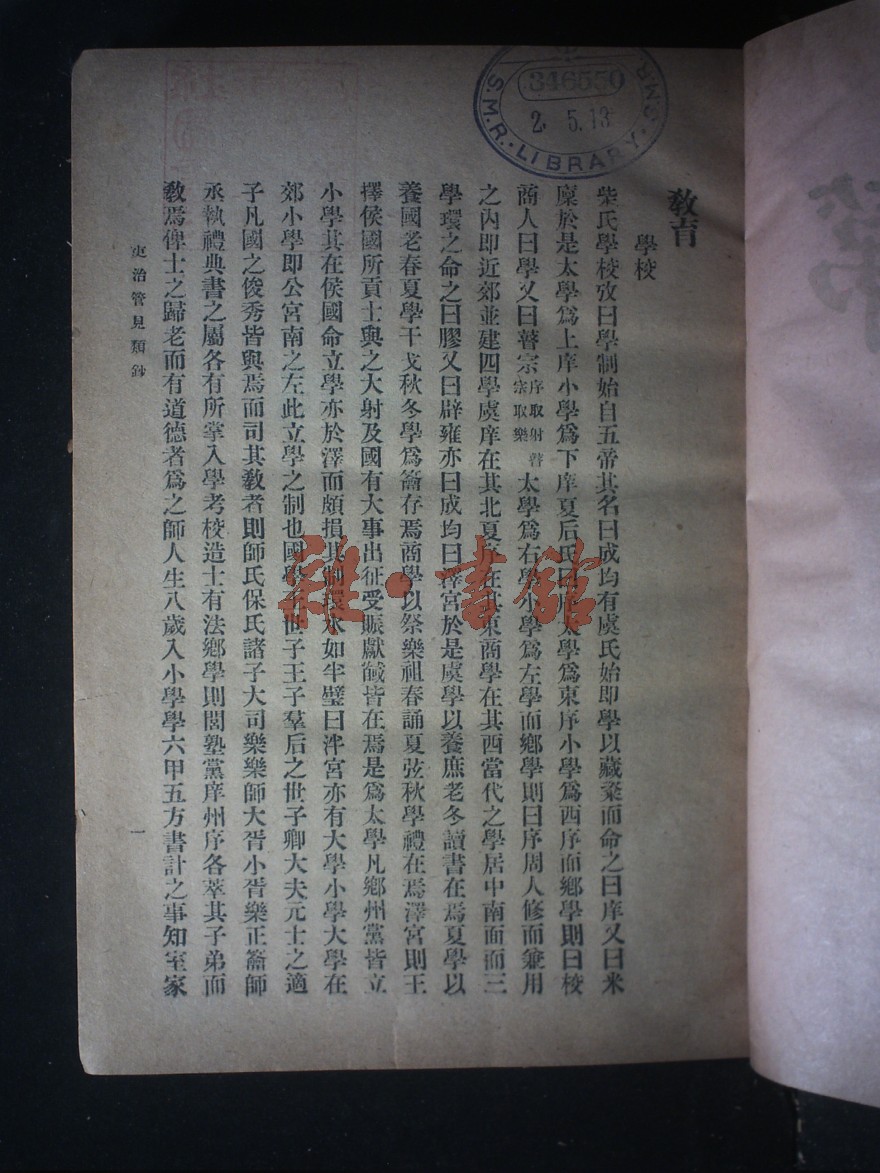 346550
2. 5. 13
S.M.R. LIBRARY
教育
學校
柴氏學校攷曰學制始自五帝其名曰成均有虞氏始即學以藏粢而命之曰庠又曰米
廩於是太學爲上庠小學爲下庠夏后氏曰序太學爲東序小學爲西序而鄉學則曰校
商人曰學又曰瞽宗序取射瞽宗取樂太學爲右學小學爲左學而鄉學則曰序周人修而兼用
之內即近郊並建四學虞庠在其北夏序在其東商學在其西當代之學居中南面而三
學環之命之曰膠又曰辟雍亦曰成均曰澤宮於是虞學以養庶老冬讀書在焉夏學以
養國老春夏學干戈秋冬學爲籥存焉商學以祭樂祖春誦夏弦秋學禮在焉澤宮則王
擇侯國所貢士與之大射及國有大事出征受賑獻馘皆在焉是爲太學凡鄉州黨皆立
小學其在侯國命立學亦於澤而頗損其制環水如半璧曰泮宮亦有大學小學大學在
郊小學即公宮南之左此立學之制也國學世子王子羣后之世子卿大夫元士之適
子凡國之俊秀皆與焉而司其敎者則師氏保氏諸子大司樂樂師大胥小胥樂正籥師
丞執禮典書之屬各有所掌入學考校造士有法鄉學則閭塾黨庠州序各萃其子弟而
敎焉俾士之歸老而有道德者爲之師人生八歲入小學學六甲五方書計之事知室家
吏治管見類鈔
一
雜·書館